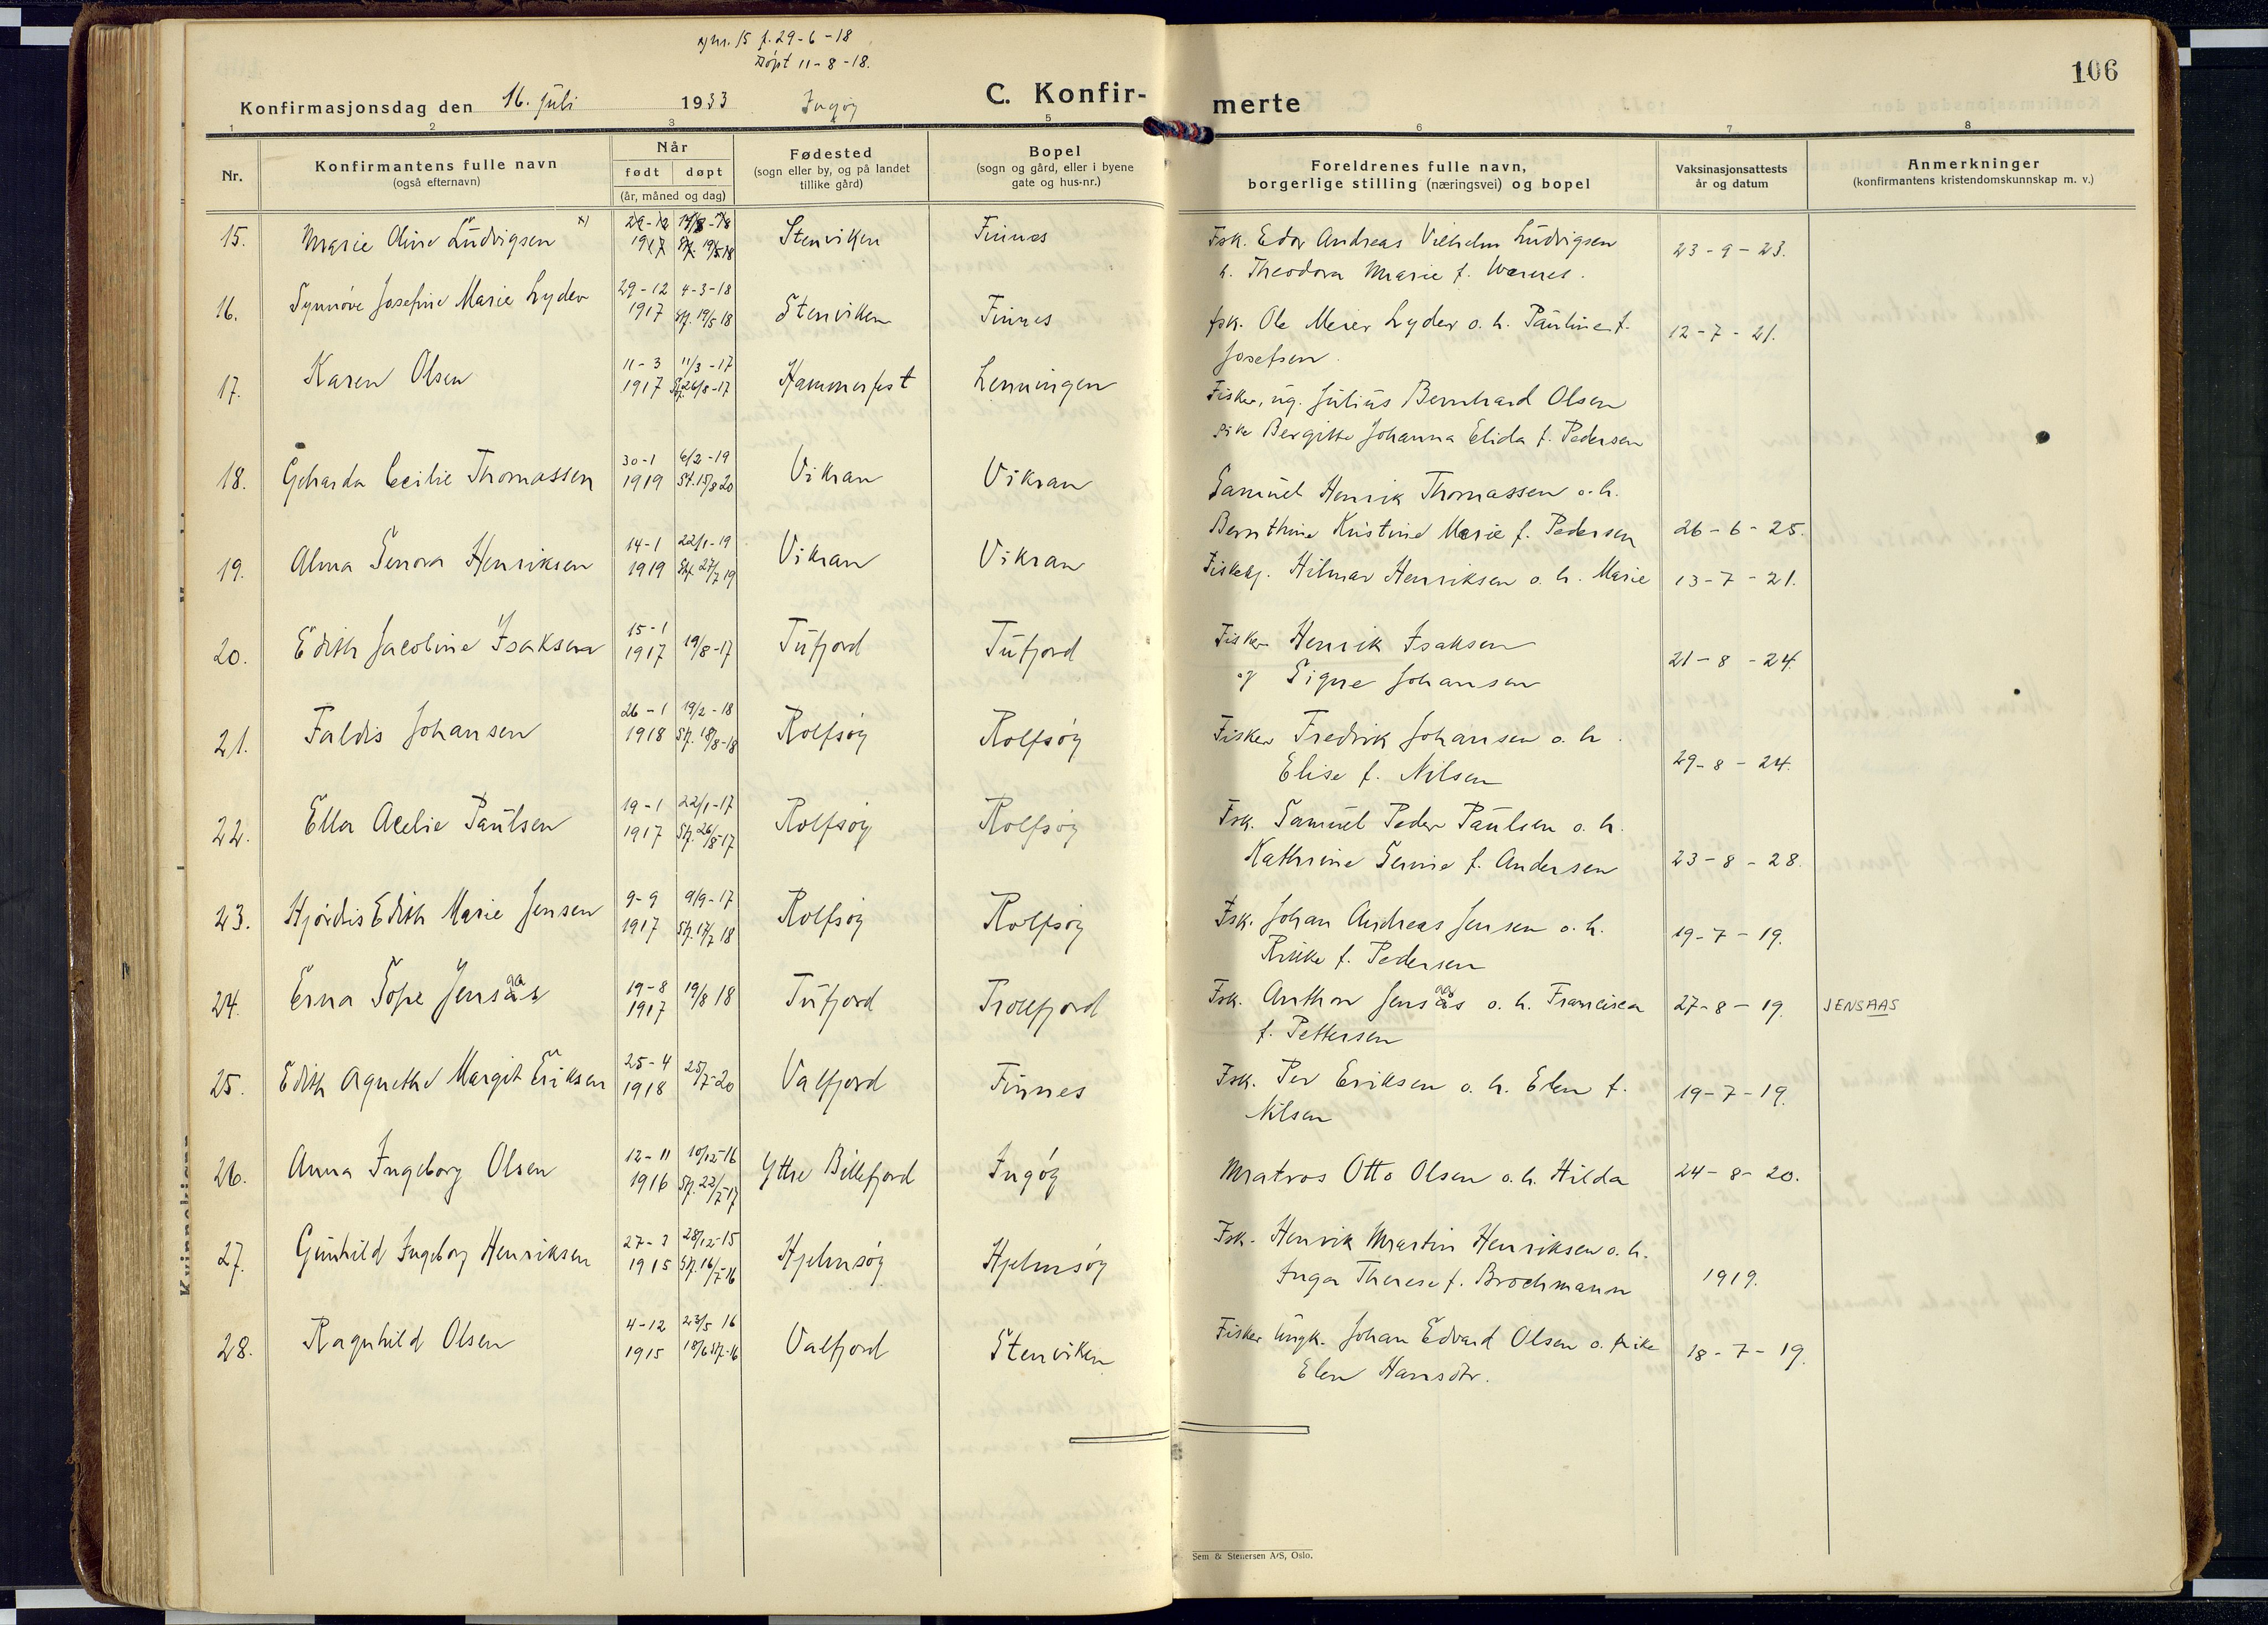 x) nr. 15 f. 29-6-18
Døpt 11-8-18.
106
Konfirmasjonsdag den 16. juli 1933 Ingøy C. Konfir-merte
1 2 3 5 6 7 8
Nr.
Konfirmantens fulle navn
(også efternavn)
Når
født døpt
(år, måned og dag)
Fødested
(sogn eller by, og på landet
tillike gård)
Bopel
(sogn og gård, eller i byene
gate og hus-nr.)
Foreldrenes fulle navn,
borgerlige stilling (næringsvei) og bopel
Vaksinasjonsattests
år og datum
Anmerkninger
(konfirmantens kristendomskunnskap m. v.)
15. Marie Oline Ludvigsen x) 29-12 1917 19/5 18 Stenviken Finnes
Fsk. Edor Andreas Vilhelm Ludvigsen
h. Theodora Marie f. Warnes. 23-9-23.
16. Synnöve Josefine Marie Lyder 29-12 1917 4-3-18 Stf. 19/5 18 Stenviken Finnes
fsk. Ole Meier Lyder o. h. Pauline f.
Josefsen. 12-7-21.
17. Karen Olsen 11-3 1917 11/3-17 Stf. 26/8-17 Hammerfest Lenningen
Fisker, ug. Julius Bernhard Olsen
pike Bergitte Johanna Elida f. Pedersen
18. Gjeharda Cecilie Thomassen 30-1 1919 6/2-19 St. 15/8 20 Vikran Vikran
Samuel Henrik Thomassen o. h.
Bernthine Kristine Marie f. Pedersen 26-6-25.
19. Alma Senora Henriksen 14-1 1919 22/1-19 Stf. 27/7 19 Vikran Vikran
Fiskebj. Hilmar Henriksen o. h. Marie 13-7-21.
20. Edith Jacobine Isaksen 15-1 1917 19/8-17 Tufjord Tufjord
Fisker Henrik Isaksen
og Signe Johansen 21-8-24.
21. Faldis Johansen 26-1 1918 19/2-18 Stf. 18/8-18 Rolfsøy Rolfsøy
Fisker Fredrik Johansen o. h.
Elise f. Nilsen 29-8-24.
22. Ella Acelie Paulsen 19-1 1917 22/1-17 Stf. 26/8-17 Rolfsøy Rolfsøy
Fsk. Samuel Peder Paulsen o. h.
Kathrine Semine f. Andersen 23-8-28.
23. Hjördis Edith Marie Jensen 9-9 1917 9/9-17 Stf. 17/7 18 Rolfsøy Rolfsøy
Fsk. Johan Andreas Jensen o. h.
Rikke f. Pedersen 19-7-19.
24. Erna Sofie Jensås aa 19-8 1917 19/8 18 Tufjord Trollfjord
Fsk. Anthon Jensås aa o. h. Francisca
f. Pettersen 27-8-19. JENSAAS
25. Edith Agnethe Margit Eriksen 25-4 1918 25/7-20 Valfjord Finnes
Fsk. Per Eriksen o. h. Elen f.
Nilsen 19-7-19.
26. Anna Ingeborg Olsen 12-11 1916 10/12-16 Stf. 22/7-17 Yttre Billefjord Ingøy
Matros Otto Olsen o. h. Hilda 24-8-20.
27. Gunhild Ingeborg Henriksen 27-3 1915 28/12-15 Stf. 16/7-16 Hjelmsøy Hjelmsøy
Fsk. Henrik Martin Henriksen o. h.
Inga Therese f. Brochmann 1919.
28. Ragnhild Olsen 4-12 1915 23/5 16 18/6 Stf.-16 Valfjord Stenviken
Fisker ungk. Johan Edvard Olsen o. pike
Elen Hansdtr. 18-7-19.
Sem & Stenersen A/S, Oslo.